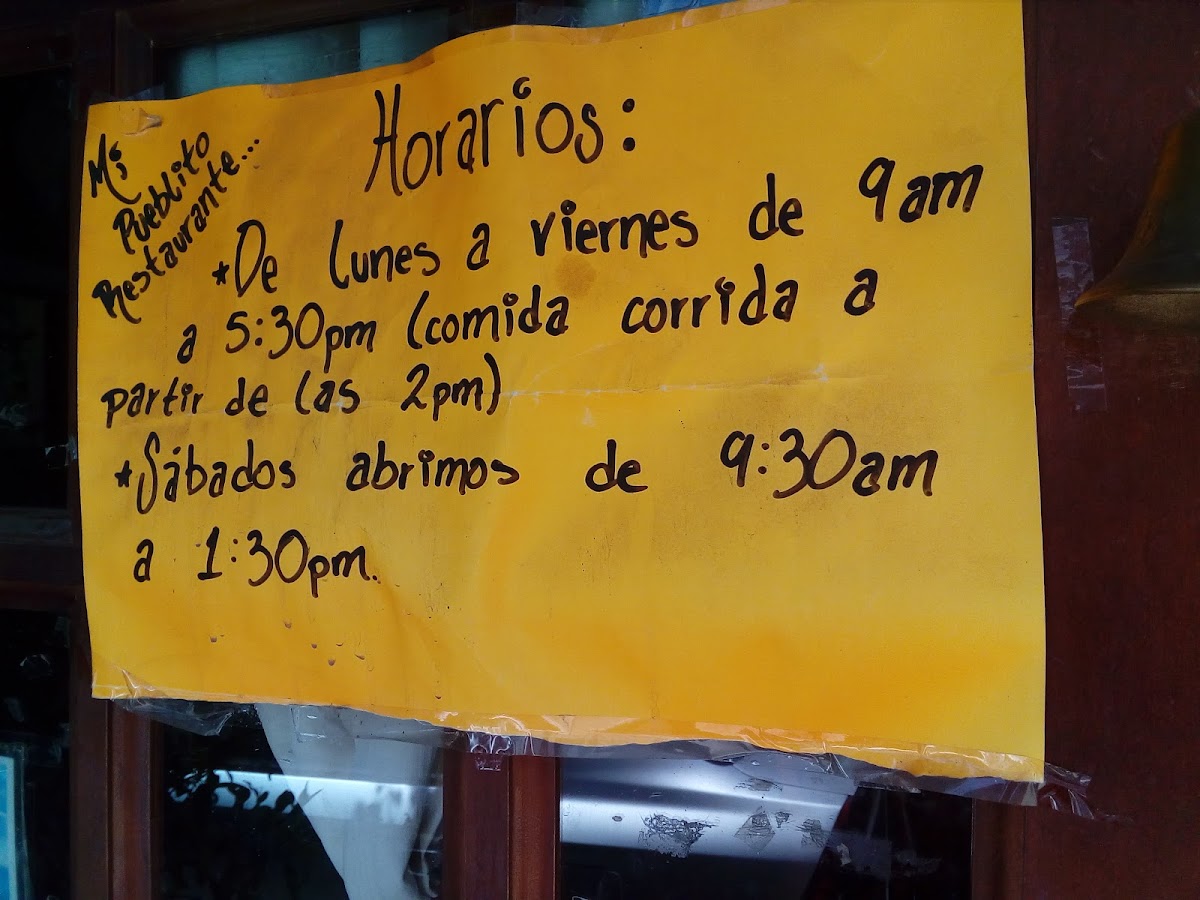 Mi
Pueblito
Restaurante...
Horarios:
*De lunes a viernes de 9am
a 5:30pm (comida corrida a
partir de las 2pm)
*Sábados abrimos de 9:30am
a 1:30pm.